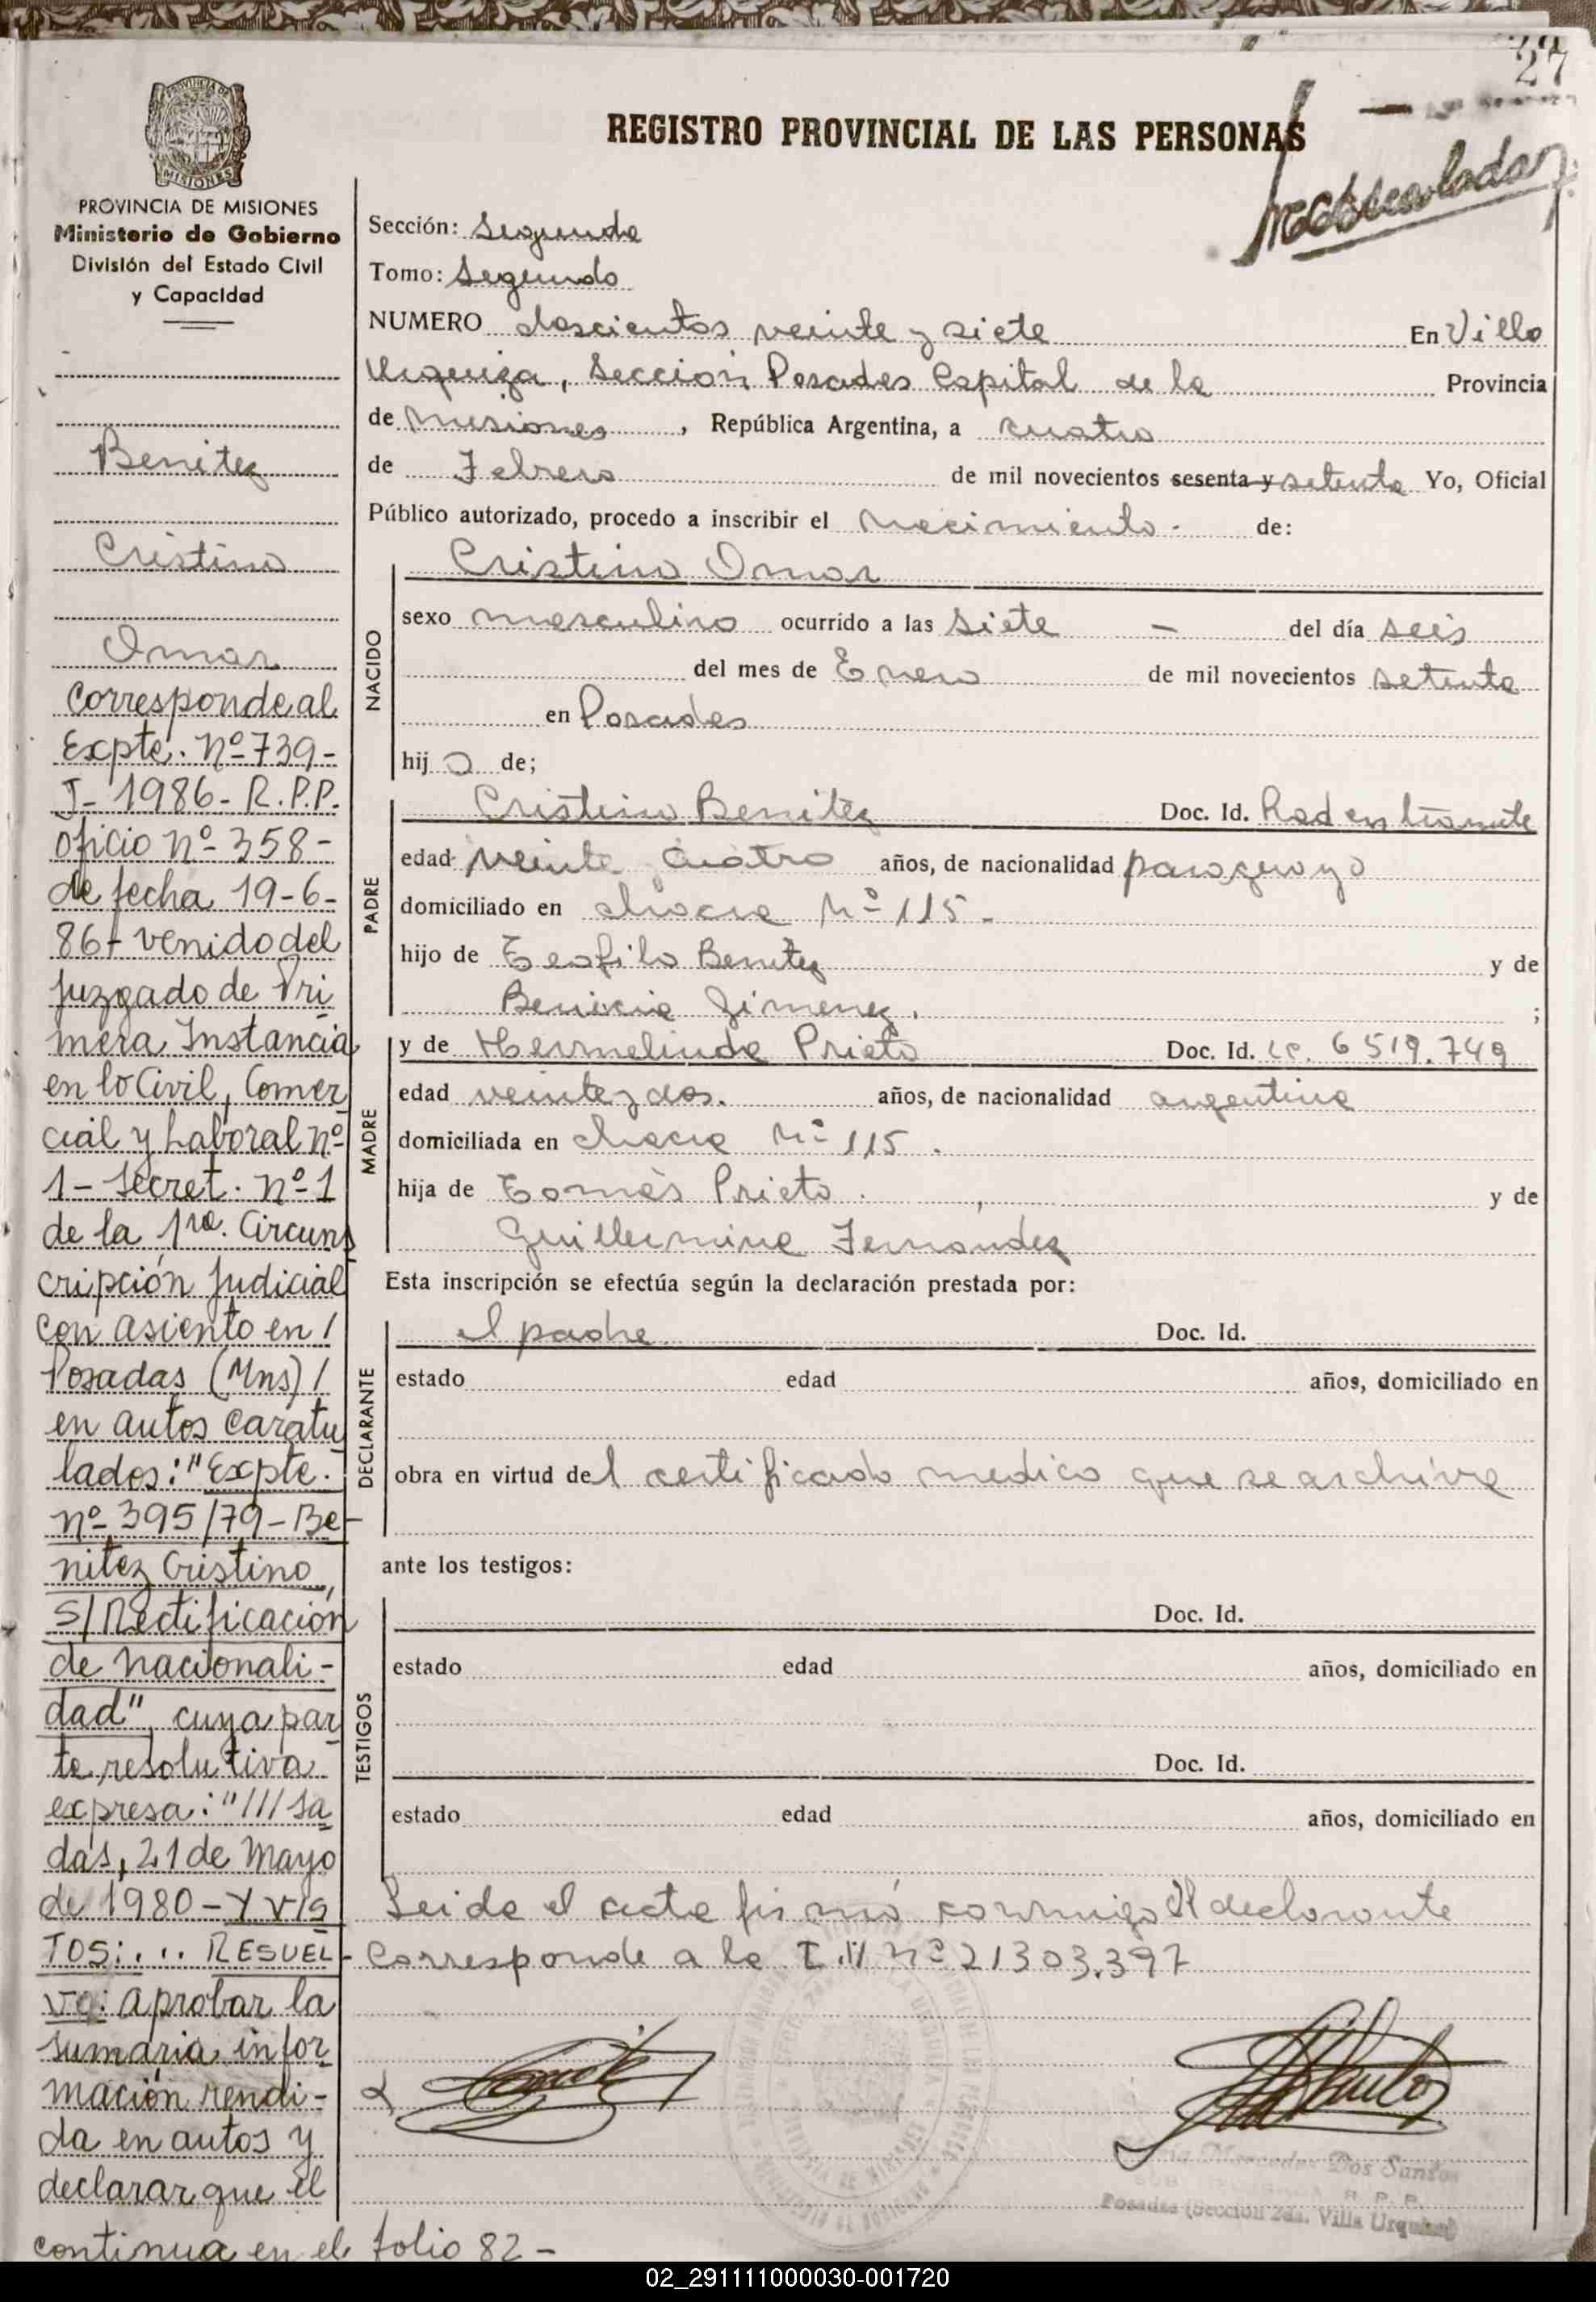 27
REGISTRO PROVINCIAL DE LAS PERSONAS
PROVINCIA DE MISIONES
Ministerio de Gobierno
División del Estado Civil
y Capacidad
Benitez
Cristino
Omar
Corresponde al
Expte. Nº 739-
J- 1986- R.P.P.
Oficio nº 358-
de fecha 19-6-
86- venido del
Juzgado de Pri
mera Instancia
en lo Civil, Comer
cial y Laboral nº
1- Secret. nº 1
de la 1ra. Circuns
cripción Judicial
con asiento en /
Posadas (Mns) /
en autos caratu
lados: "Expte.
nº 395/79- Be-
nitez Cristino,
S/Rectificación
de nacionali-
dad", cuya par
te resolutiva
expresa: "///sa
das, 21 de Mayo
de 1980- Y VIS
TOS: ... RESUEL-
vo: aprobar la
sumaria infor
mación rendi-
da en autos y
declarar que el
continua en el folio 82-
Sección: Segunda
Tomo: Segundo
NUMERO doscientos veinte y siete En Villa
Urquiza, Sección Posadas Capital de la Provincia
de Misiones, República Argentina, a cuatro
de Febrero de mil novecientos sesenta y setenta Yo, Oficial
Público autorizado, procedo a inscribir el nacimiento - de:
NACIDO
Cristino Omar
sexo masculino ocurrido a las siete - del día seis
del mes de Enero de mil novecientos setenta
en Posadas
hij o de;
PADRE
Cristino Benitez Doc. Id. Rad en tramite
edad veinte cuatro años, de nacionalidad paraguayo
domiciliado en chacra Nº 115-
hijo de Teofilo Benitez y de
Benicia Jimenez. ;
MADRE
y de Hermelinda Prieto Doc. Id. LC. 6519.749
edad veinte y dos. años, de nacionalidad argentina
domiciliada en chacra Nº 115.
hija de Tomás Prieto. y de
Guillermina Fernandez
Esta inscripción se efectúa según la declaración prestada por:
DECLARANTE
el padre Doc. Id.
estado edad años, domiciliado en
obra en virtud del certificado medico que se archiva
ante los testigos:
TESTIGOS
Doc. Id.
estado edad años, domiciliado en
Doc. Id.
estado edad años, domiciliado en
Leida el acta firmó conmigo el declarante
Corresponde a la I.M nº 21303.397
Mercedes Dos Santos
R. P. P.
Posadas (Sección 2da. Villa Urquiza)
02_291111000030-001720